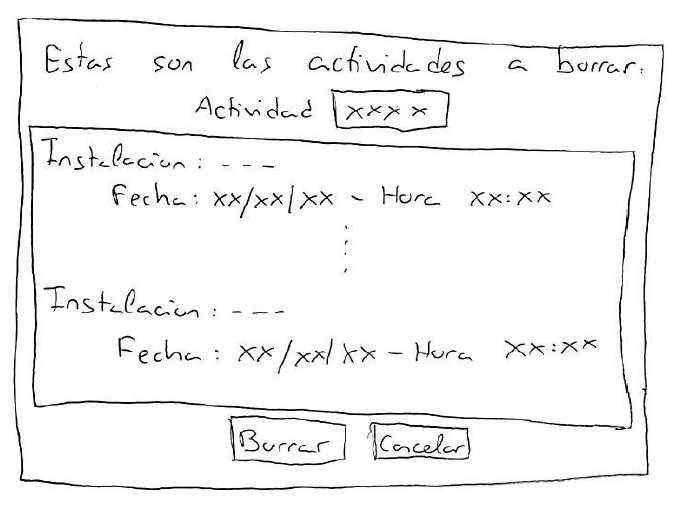 Estas son las actividades a borrar.
Actividad xxxx
Instalacion: ---
Fecha: xx/xx/xx - Hora xx:xx
Instalacion: ---
Fecha: xx/xx/xx - Hora xx:xx
Borrar Cancelar